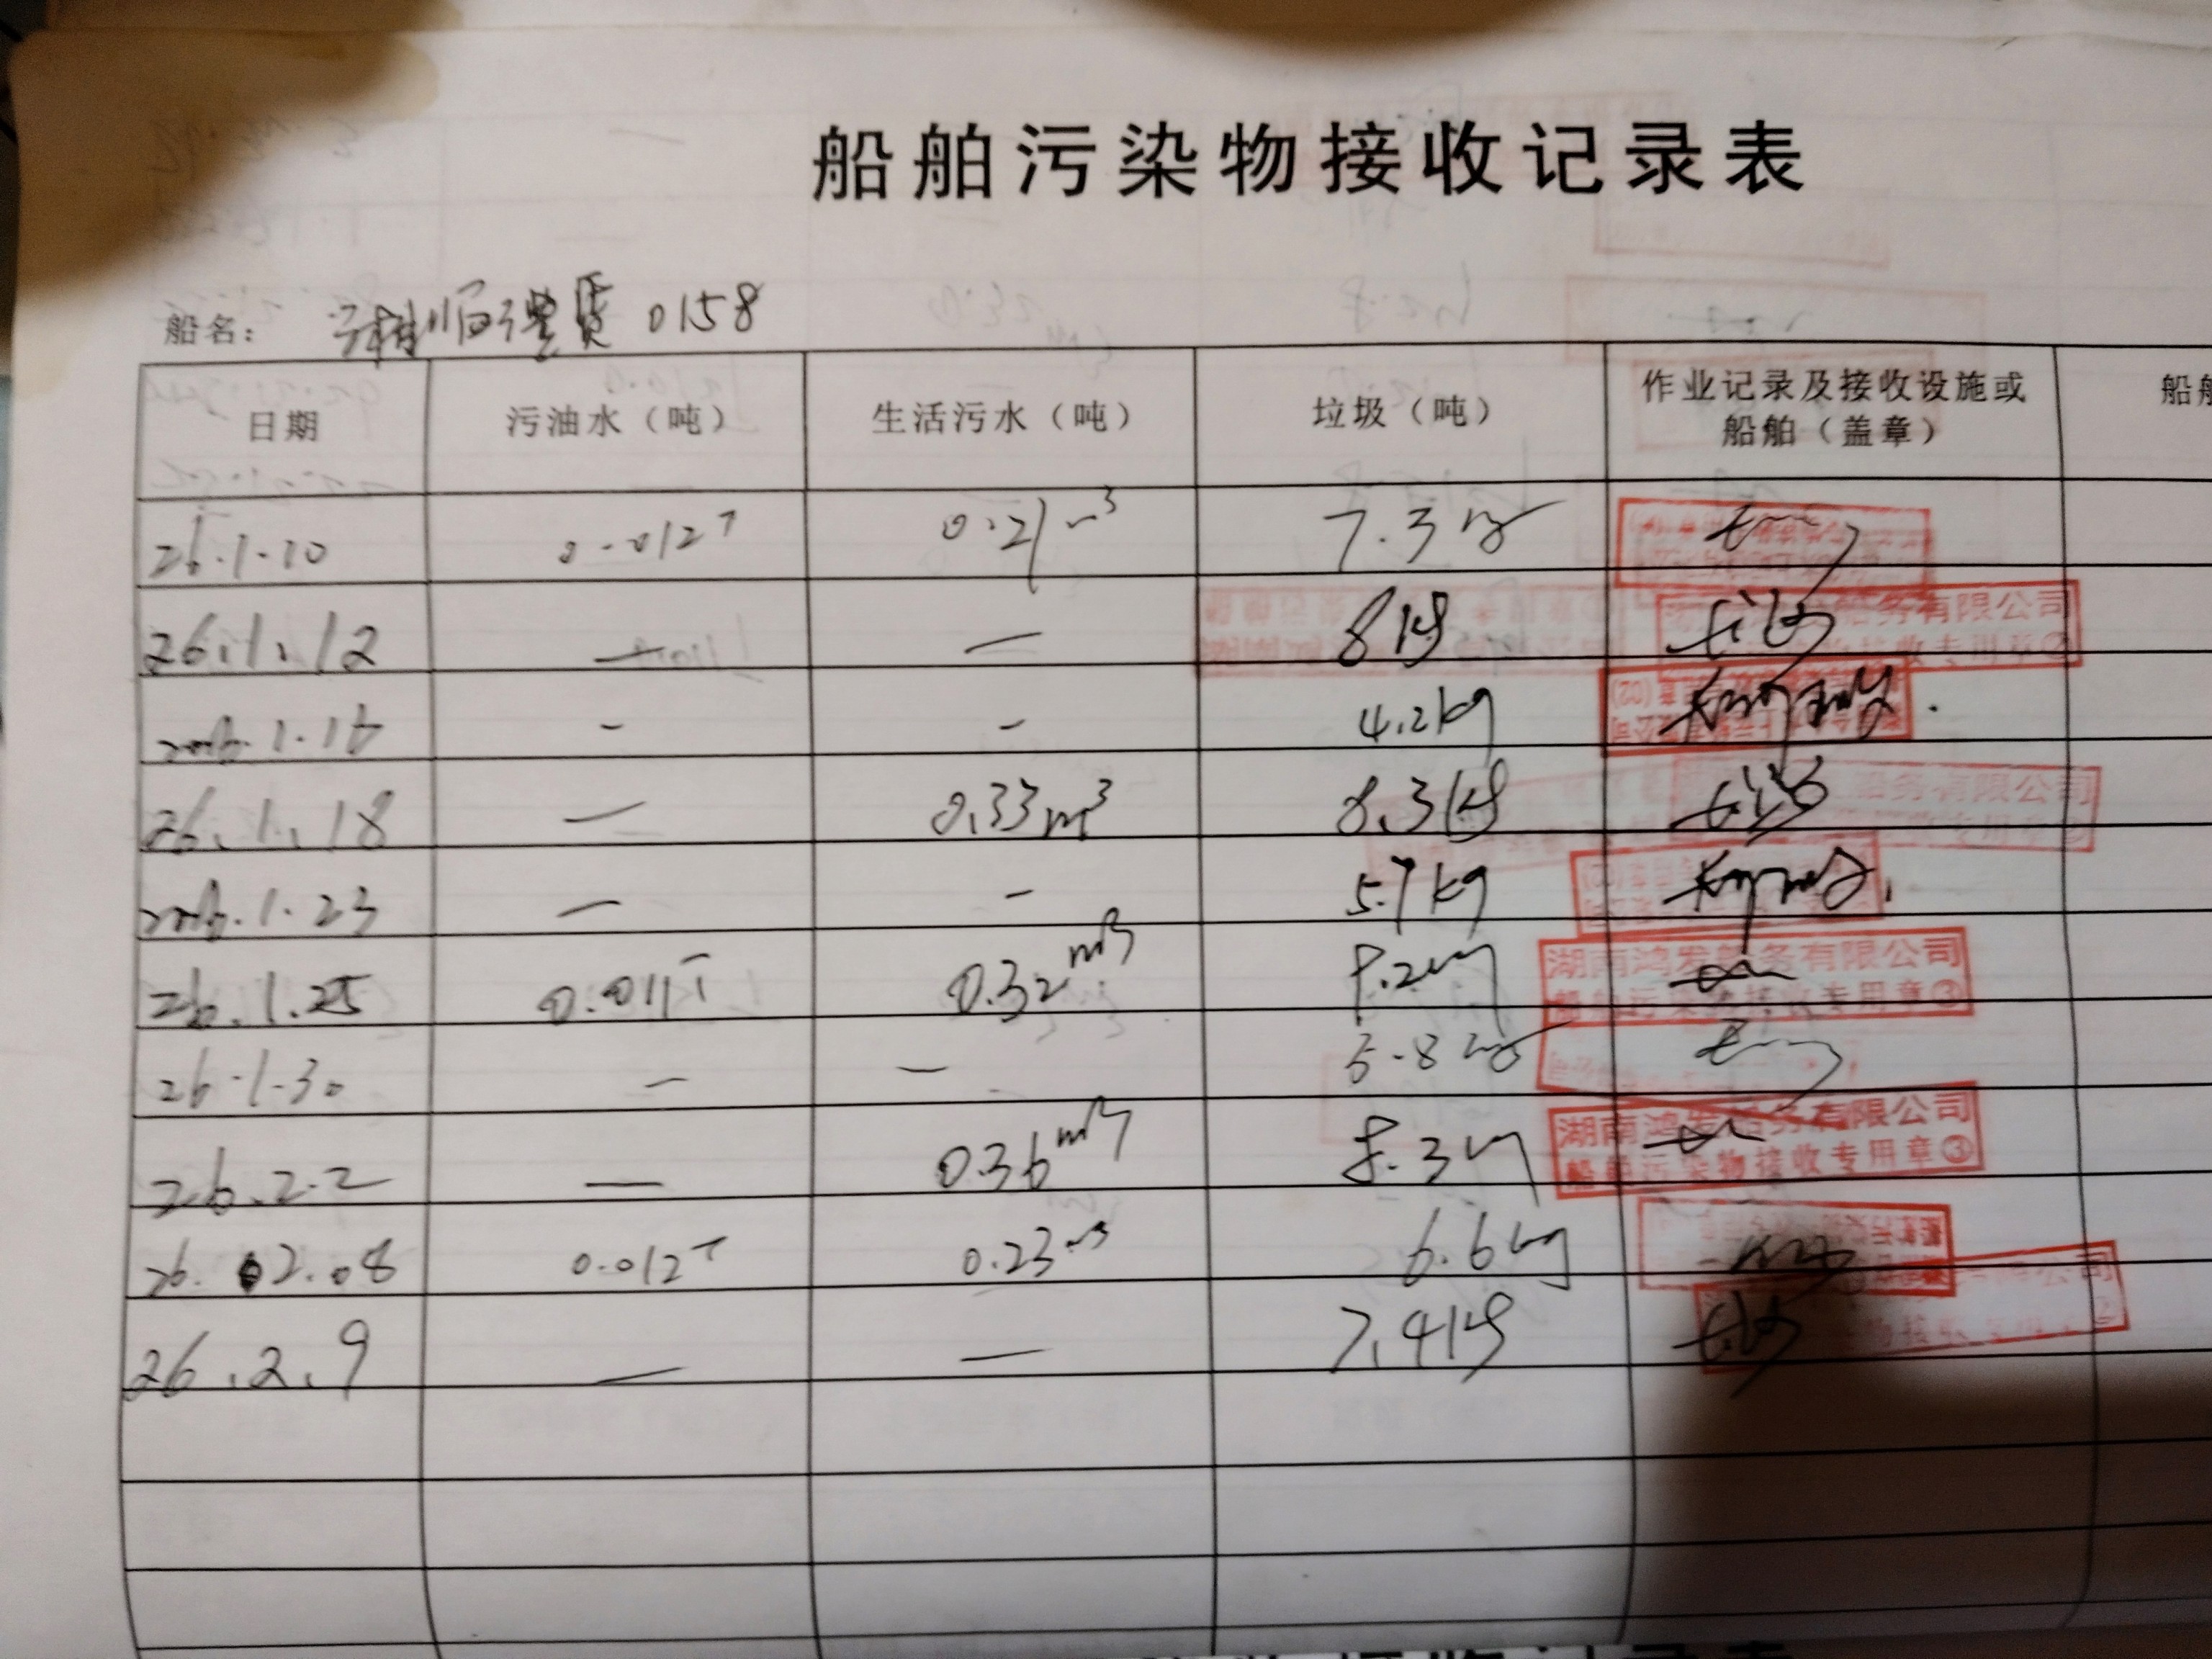 船舶污染物接收记录表
船名： 货 0158
日期 污油水（吨） 生活污水（吨） 垃圾（吨） 作业记录及接收设施或船舶（盖章） 船舶
26.1.10 0.012T 0.21m³ 7.3kg
26.1.12 — — 8kg 务有限公司 接收专用章②
2026.1.16 - - 4.2kg
26.1.18 — 0.33m³ 8.3kg 船务有限公司
2026.1.23 — - 5.7kg
26.1.25 0.011T 0.32m³ 8.2kg 湖南鸿发船务有限公司 船舶污染物接收专用章③
26.1.30 — — 5.8kg
26.2.2 — 0.36m³ 8.3kg 湖南鸿发船务有限公司 船舶污染物接收专用章③
26.02.08 0.012T 0.23m³ 6.6kg
26.2.9 — — 7.4kg